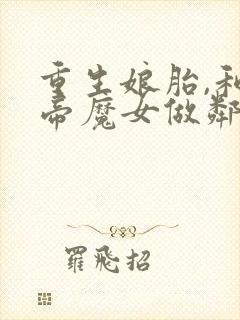 重生娘胎,和
帝魔女做鄰
羅飛招